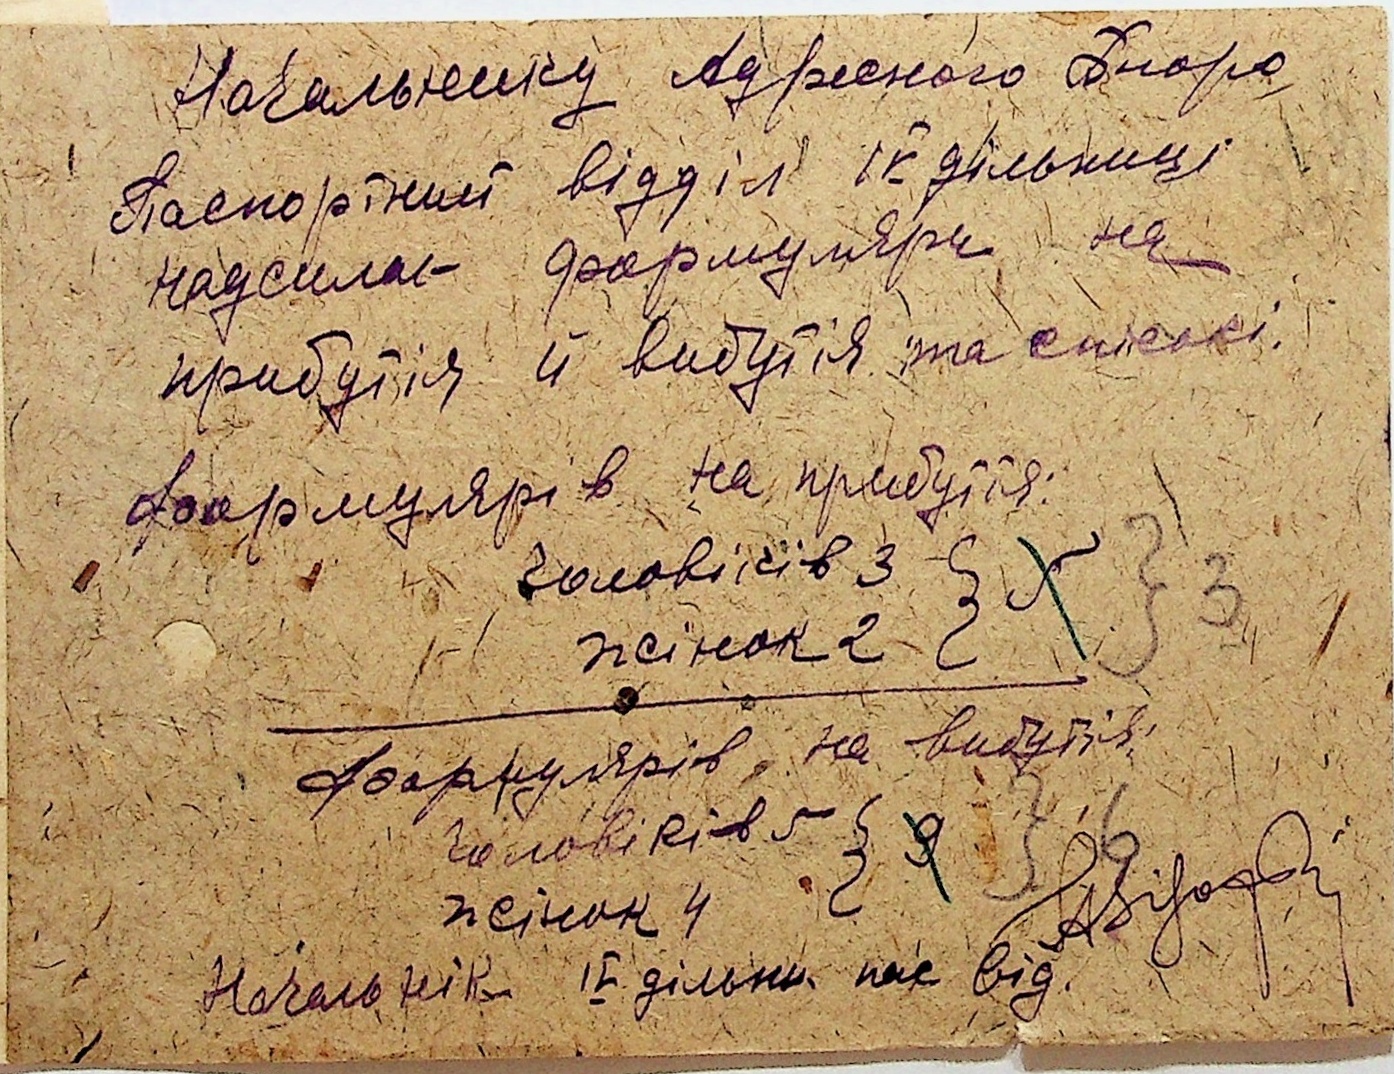 Начальнику Адресного Бюро
Паспортний відділ ІV дільниці
надсилає формуляри на
прибуття й вибуття та спискі.
Формулярів на прибуття:
Чоловіків 3 } 5 } 3
жінок 2
Формулярів на вибуття:
Чоловіків 5 } 9 } 6
жінок 4
Начальнік ІV дільни. пас від.